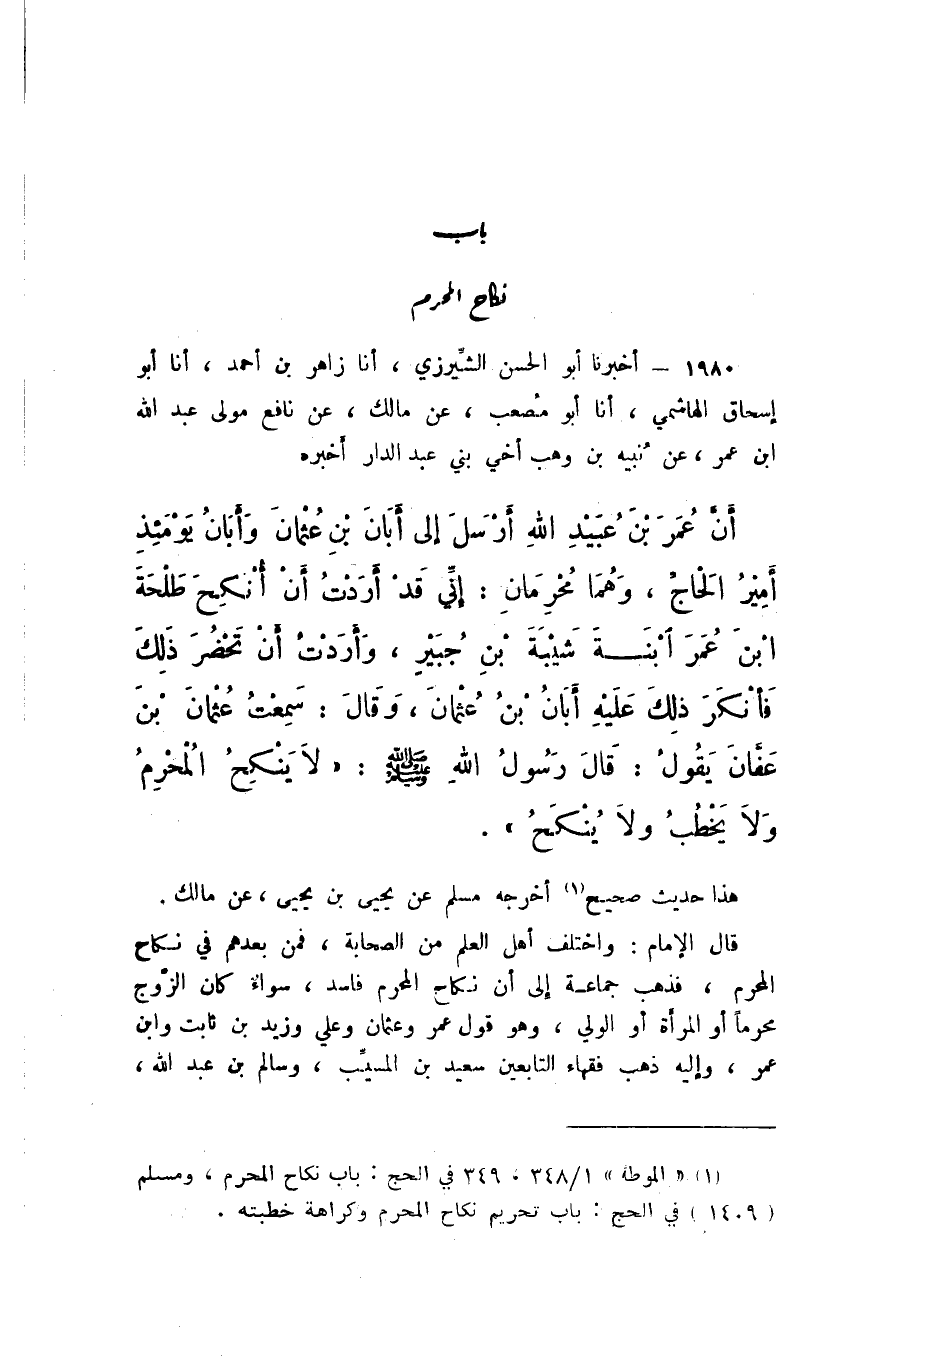 باب
نكاح المحرم
١٩٨٠ – أخبرنا أبو الحسن الشِّيرزي ، أنا زاهر بن أحمد ، أنا أبو
إسحاق الهاشمي ، أنا أبو مُصعب ، عن مالك ، عن نافع مولى عبد الله
ابن عمر ، عن نُبيه بن وهب أخي بني عبد الدار أخبره
أَنَّ عُمَرَ بْنَ عُبَيْدِ اللهِ أَرْسَلَ إلى أَبَانَ بْنِ عُثْمَانَ وَأَبَانُ يَوْمَئِذٍ
أَمِيْرُ الْحَاجِّ ، وَهُمَا مُحْرِمَانِ : إنِّي قَدْ أَرَدْتُ أَنْ أُنْكِحَ طَلْحَةَ
ابْنَ عُمَرَ ابْنَــةَ شَيْبَةَ بْنِ جُبَيْرٍ ، وَأَرَدْتُ أَنْ تَحْضُرَ ذَلِكَ
فَأَنْكَرَ ذلِكَ عَلَيْهِ أَبَانُ بْنُ عُثْمَانَ ، وَقَالَ : سَمِعْتُ عُثْمَانَ بْنَ
عَفَّانَ يَقُولُ : قَالَ رَسُولُ اللهِ ﷺ : « لاَ يَنْكِحُ الْمُحْرِمُ
وَلاَ يَخْطُبُ ولاَ يُنْكَحُ » .
هذا حديث صحيح(١) أخرجه مسلم عن يحيى بن يحيى ، عن مالك .
قال الإمام : واختلف أهل العلم من الصحابة ، فمن بعدهم في نكاح
المحرم ، فذهب جماعة إلى أن نكاح المحرم فاسد ، سواءٌ كان الزَّوج
محرماً أو المرأة أو الولي ، وهو قول عمر وعثمان وعلي وزيد بن ثابت وابن
عمر ، وإليه ذهب فقهاء التابعين سعيد بن المسيِّب ، وسالم بن عبد الله ،
(١) « الموطأ » ٣٤٨/١ ، ٣٤٩ في الحج : باب نكاح المحرم ، ومسلم
( ١٤٠٩ ) في الحج : باب تحريم نكاح المحرم وكراهة خطبته .